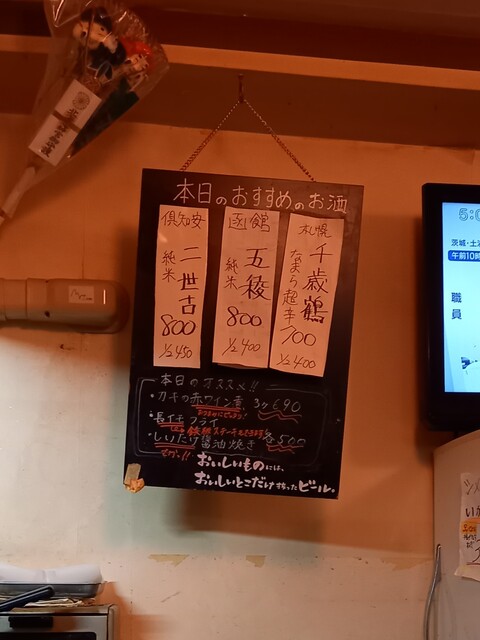 本日のおすすめのお酒
札幌
千歳鶴
なまら超辛
700
1/2 400
函館
五稜
純米
800
1/2 400
倶知安
二世古
純米
800
1/2 450
本日のオススメ!!
・カキの赤ワイン煮 3ヶ690
・長イモフライ
・しいたけ醤油焼き 各500
おいしいものには、
おいしいとこだけ搾ったビール。
5:0
茨城・土
午前10時
職
員